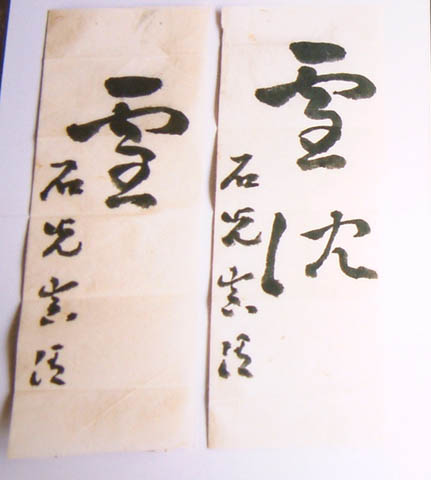 雪沈
石光真清
雪
石光真清